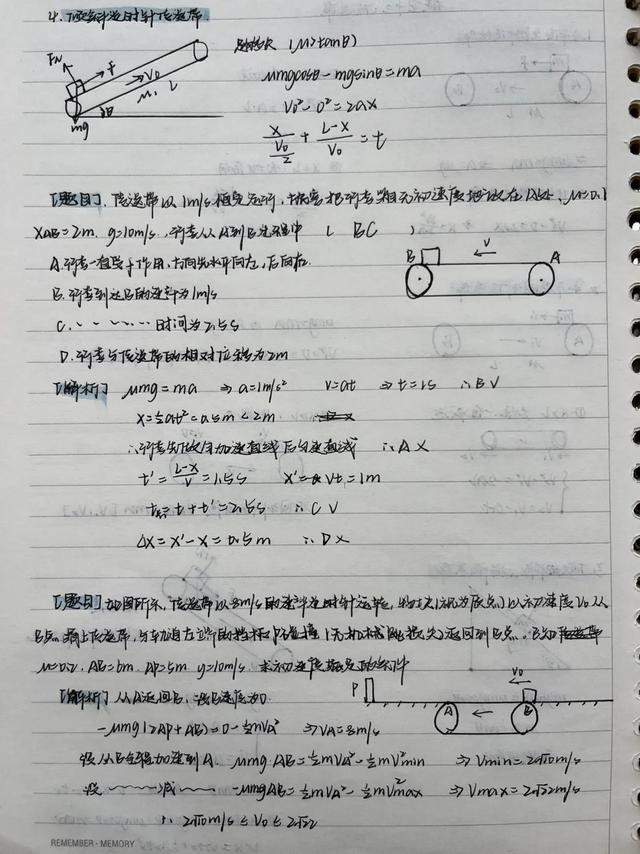 4. 倾斜逆时针传送带
FN
f
V0
μ, L
mg
θ
(μ>tanθ)
μmgcosθ - mgsinθ = ma
V0² - 0² = 2ax
x/(V0/2) + (L-x)/V0 = t
【题目】. 传送带以1m/s恒定运行, 旅客把行李箱无初速度地放在A处. μ=0.1
XAB=2m. g=10m/s. 行李从A到B过程中 ( BC )
A. 行李一直受f作用, 方向先水平向左, 后向右.
B. 行李到达B的速率为1m/s
C. 〃 〃 时间为2.5s
D. 行李与传送带的相对位移为2m
B V A
【解析】 μmg = ma ⇒ a=1m/s² v=at ⇒ t=1s ∴B√
x=½at²=0.5m<2m
∴行李先做匀加速直线后匀速直线 ∴A×
t'=(L-x)/v=1.5s x'=vt=1m
t总=t+t'=2.5s ∴C√
Δx=x'-x=0.5m ∴D×
【题目】如图所示, 传送带以8m/s的速率逆时针运转, 物块(视为质点)以初速度V0从
B点滑上传送带, 与轨道左端的挡板P碰撞(无机械能损失)返回到B点. 已知
μ=0.2, AB=6m, AP=5m, g=10m/s, 求初速度满足的条件
P V0 A B
【解析】从A返回B, 设B速度为0
-μmg(2AP+AB)=0-½mVA² ⇒ VA=8m/s
设从B全程加速到A. μmg·AB=½mVA²-½mV²min ⇒ Vmin=2√10m/s
设 〃 减 〃 -μmgAB=½mVA²-½mV²max ⇒ Vmax=2√22m/s
∴ 2√10m/s ≤ V0 ≤ 2√22
REMEMBER · MEMORY